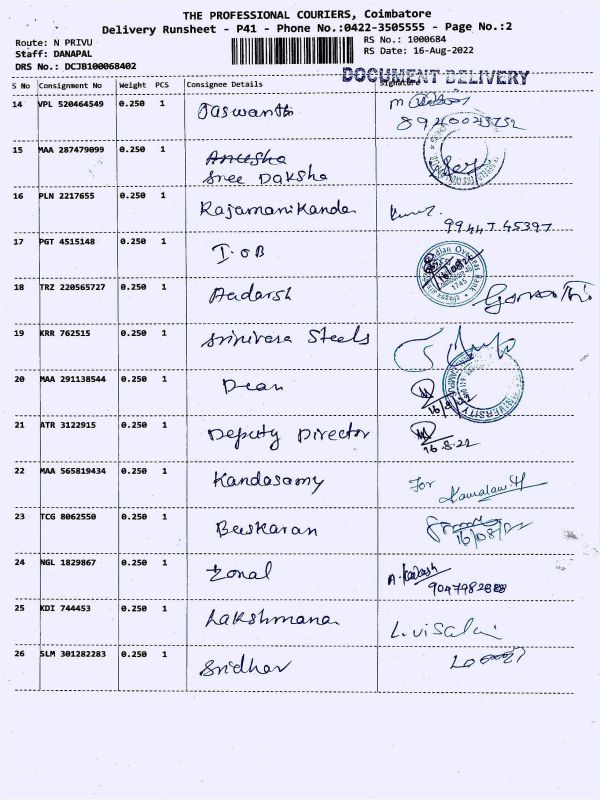 THE PROFESSIONAL COURIERS, Coimbatore
Delivery Runsheet - P41 - Phone No.:0422-3505555 - Page No.:2
Route: N PRIVU
Staff: DANAPAL
DRS No.: DCJB100068402
RS No.: 1000684
RS Date: 16-Aug-2022
DOCUMENT DELIVERY
S No Consignment No Weight PCS Consignee Details Signature
14 VPL 520464549 0.250 1 Jaswanth
15 MAA 287479099 0.250 1 Anusha
Sree Daksha
16 PLN 2217655 0.250 1 Rajamanikanda
99447 45397
17 PGT 4515148 0.250 1 I.OB
18 TRZ 220565727 0.250 1 Aadarsh
19 KRR 762515 0.250 1 Srinivasa Steels
20 MAA 291138544 0.250 1 Dean
16/8/22
21 ATR 3122915 0.250 1 Deputy Director
16.8.22
22 MAA 565819434 0.250 1 Kandasamy For
23 TCG 8062550 0.250 1 Baskaran
16/08/22
24 NGL 1829867 0.250 1 Zonal A. Kailash
25 KDI 744453 0.250 1 Lakshmana L. Visalai
26 SLM 301282283 0.250 1 Sridhar